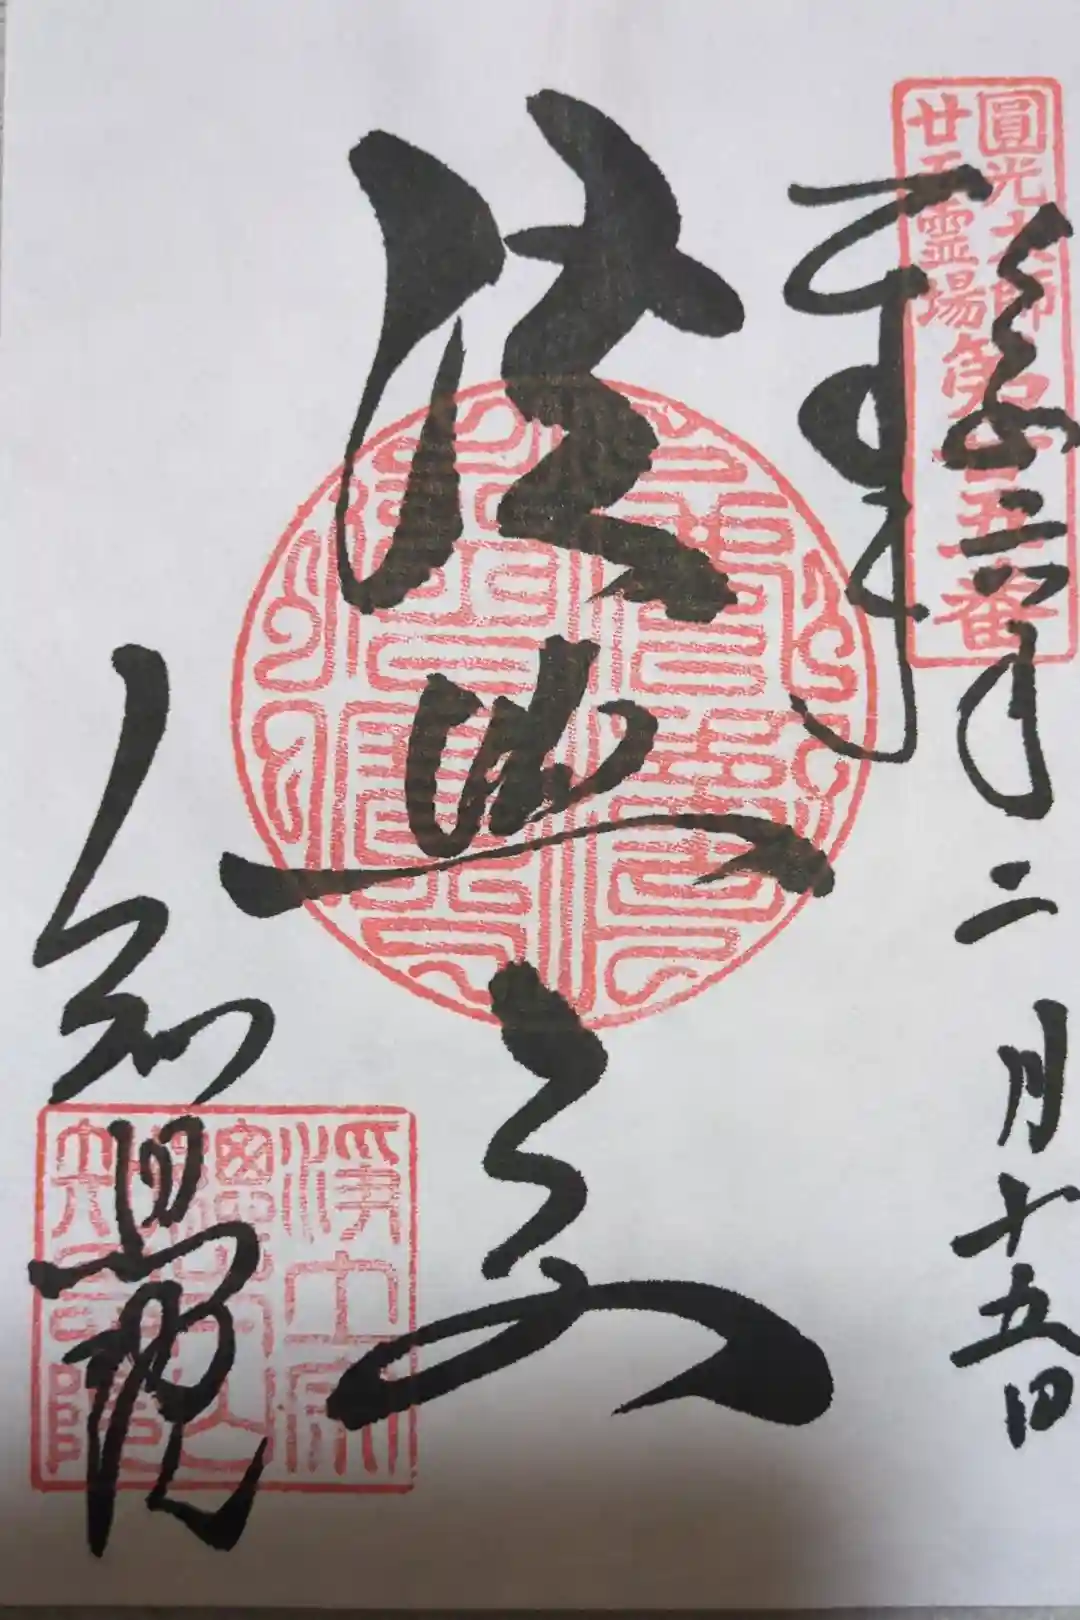 圓光大師
廿五霊場
第廿五番
奉拝
二月十五日
法然上人
知恩院
淨土宗
總本山
知恩院